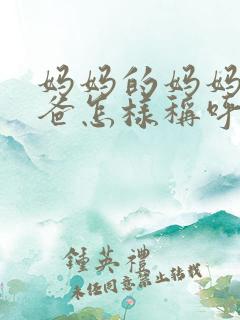 妈妈的妈妈
爸怎样稱呼
鍾英禮
未经同意禁止转载